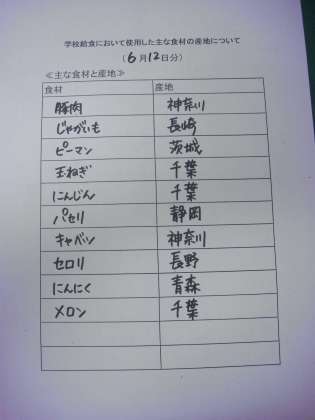 学校給食において使用した主な食材の産地について
(6月12日分)
≪主な食材と産地≫
食材 産地
豚肉 神奈川
じゃがいも 長崎
ピーマン 茨城
玉ねぎ 千葉
にんじん 千葉
パセリ 静岡
キャベツ 神奈川
セロリ 長野
にんにく 青森
メロン 千葉